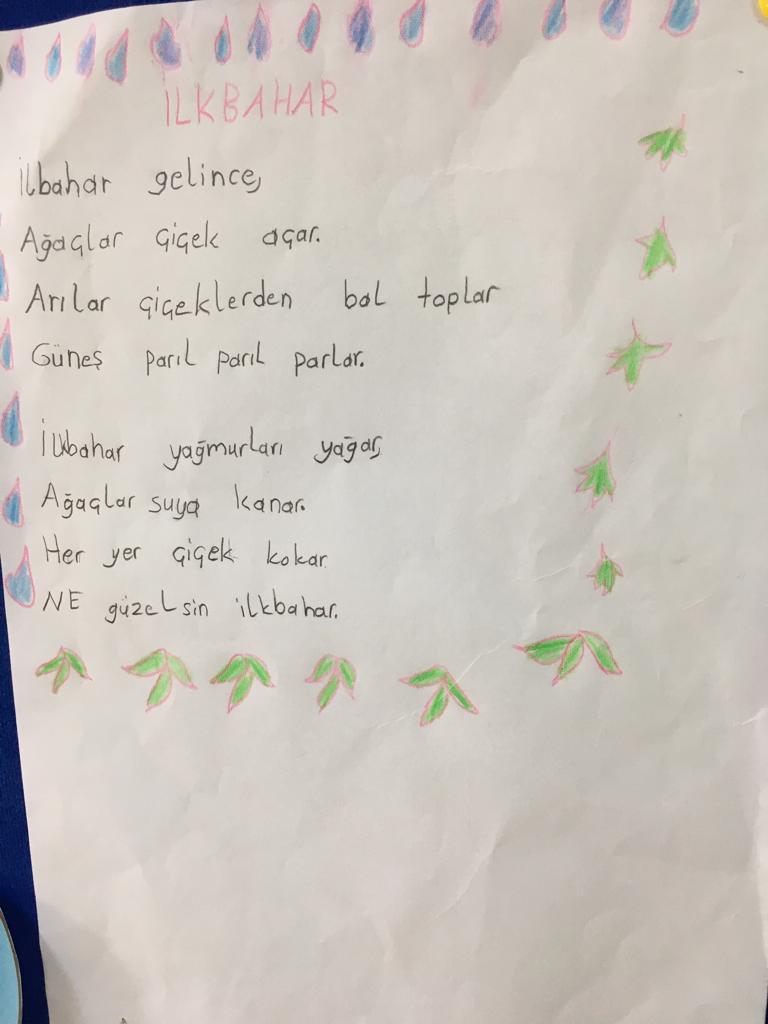 İLKBAHAR
İlbahar gelince,
Ağaçlar çiçek açar.
Arılar çiçeklerden bal toplar
Güneş parıl parıl parlar.
İlkbahar yağmurları yağar,
Ağaçlar suya kanar.
Her yer çiçek kokar
NE güzelsin ilkbahar.